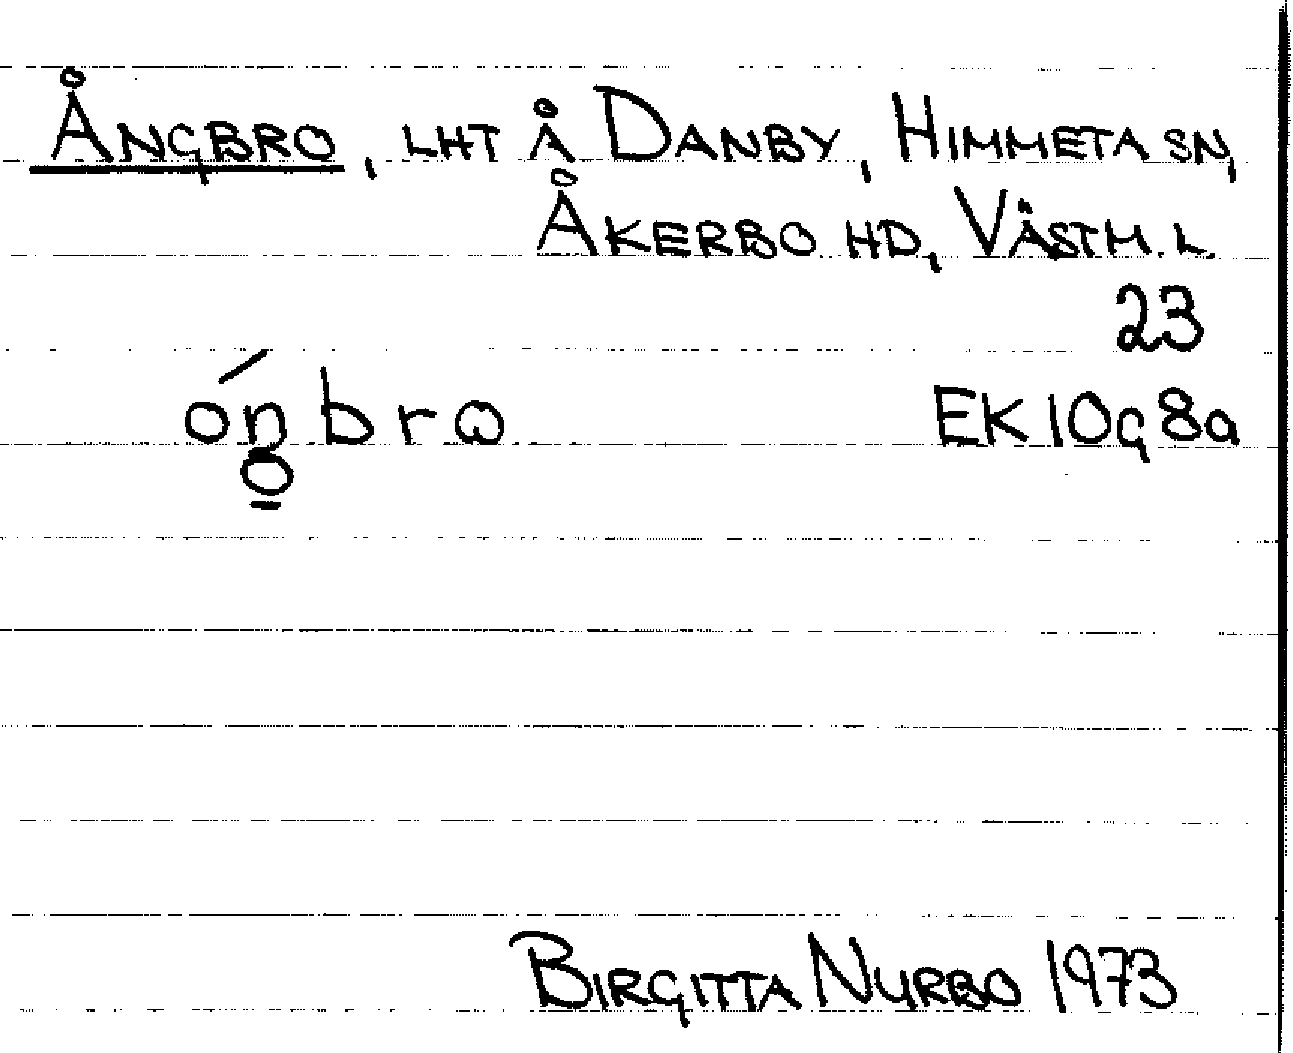 ÅNGBRO, LHT Å DANBY, HIMMETA SN,
ÅKERBO HD, VÄSTM. L.
23
EK 10g 8a
BIRGITTA NURBO 1973